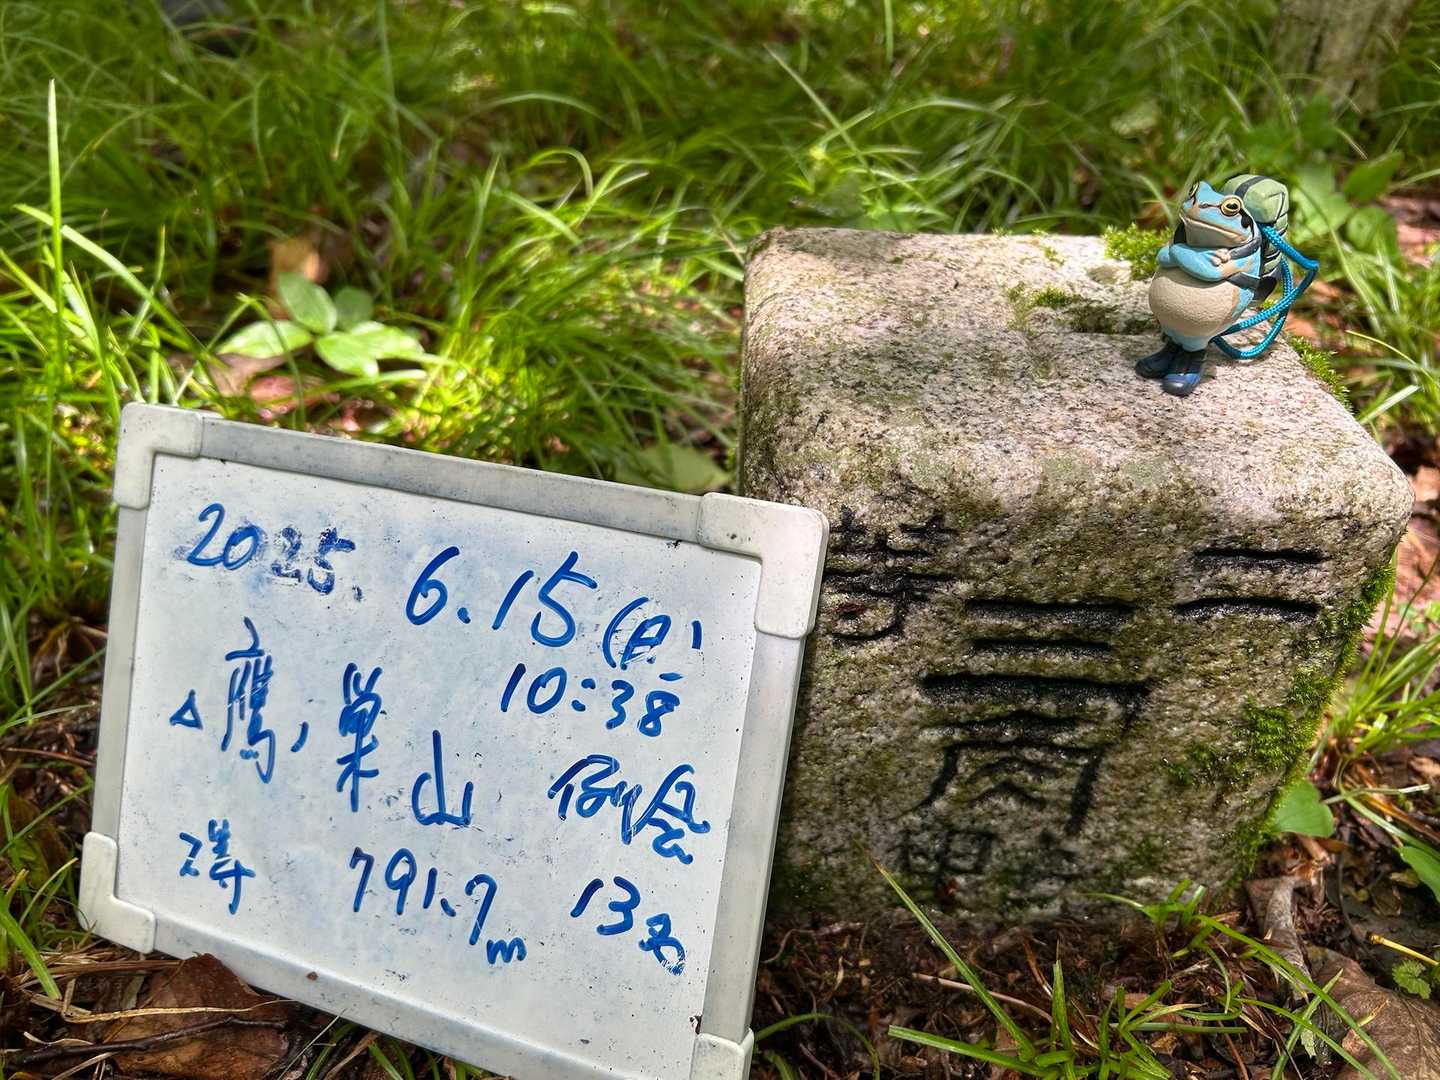 2025. 6.15(日)
10:38
△鷹ノ巣山 例会
二等 791.7m 13名
二等
三角